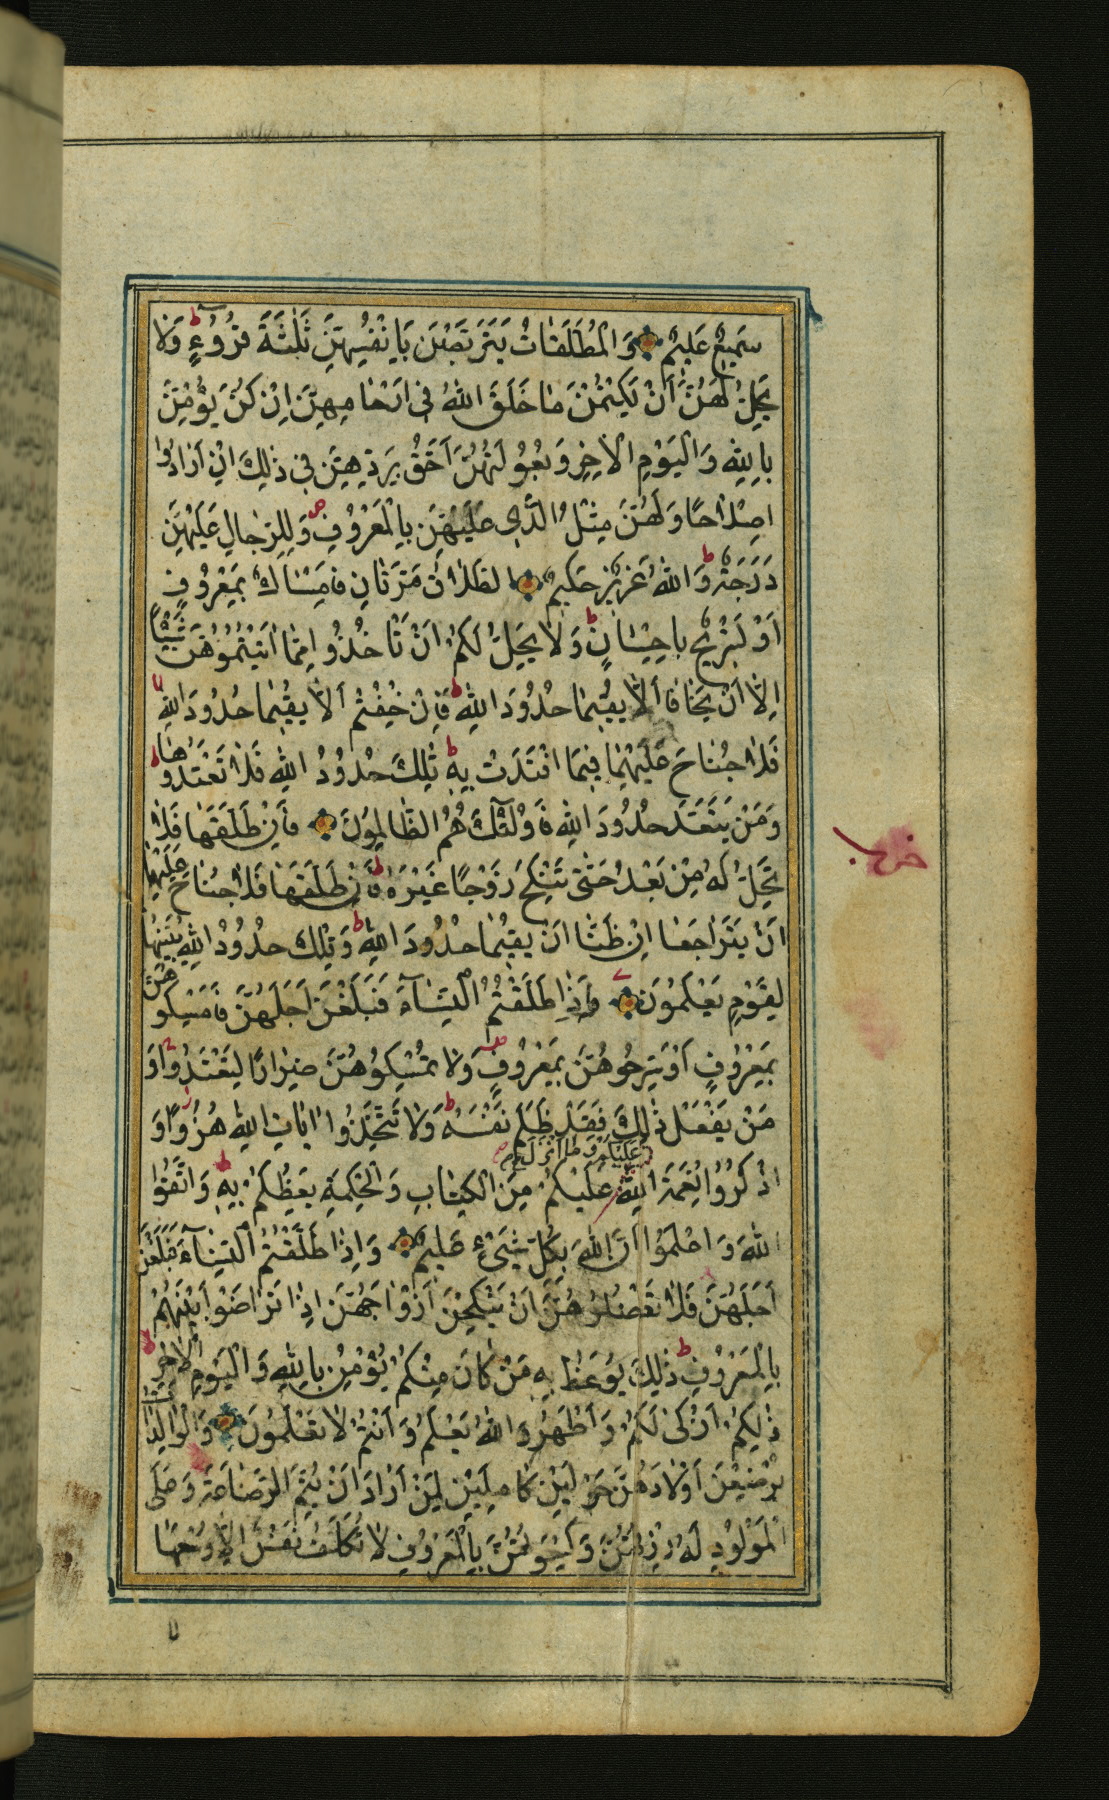 سَمِيعٌ عَلِيمٌ وَالْمُطَلَّقَاتُ يَتَرَبَّصْنَ بِاَنْفُسِهِنَّ ثَلٰثَةَ قُرُوءٍ وَلَا
يَحِلُّ لَهُنَّ اَنْ يَكْتُمْنَ مَا خَلَقَ اللهُ فِي اَرْحَامِهِنَّ اِنْ كُنَّ يُؤْمِنَّ
بِاللهِ وَالْيَوْمِ الْاٰخِرِ وَبُعُولَتُهُنَّ اَحَقُّ بِرَدِّهِنَّ فِي ذٰلِكَ اِنْ اَرَادُوا
اِصْلَاحًا وَلَهُنَّ مِثْلُ الَّذِي عَلَيْهِنَّ بِالْمَعْرُوفِ وَلِلرِّجَالِ عَلَيْهِنَّ
دَرَجَةٌ وَاللهُ عَزِيزٌ حَكِيمٌ الطَّلَاقُ مَرَّتَانِ فَاِمْسَاكٌ بِمَعْرُوفٍ
اَوْ تَسْرِيحٌ بِاِحْسَانٍ وَلَا يَحِلُّ لَكُمْ اَنْ تَاْخُذُوا مِمَّا اٰتَيْتُمُوهُنَّ شَيْئًا
اِلَّا اَنْ يَخَافَا اَلَّا يُقِيمَا حُدُودَ اللهِ فَاِنْ خِفْتُمْ اَلَّا يُقِيمَا حُدُودَ اللهِ
فَلَا جُنَاحَ عَلَيْهِمَا فِيمَا افْتَدَتْ بِهِ تِلْكَ حُدُودُ اللهِ فَلَا تَعْتَدُوهَا
وَمَنْ يَتَعَدَّ حُدُودَ اللهِ فَاُولٰئِكَ هُمُ الظَّالِمُونَ فَاِنْ طَلَّقَهَا فَلَا
تَحِلُّ لَهُ مِنْ بَعْدُ حَتّٰى تَنْكِحَ زَوْجًا غَيْرَهُ فَاِنْ طَلَّقَهَا فَلَا جُنَاحَ عَلَيْهِمَا
اَنْ يَتَرَاجَعَا اِنْ ظَنَّا اَنْ يُقِيمَا حُدُودَ اللهِ وَتِلْكَ حُدُودُ اللهِ يُبَيِّنُهَا
لِقَوْمٍ يَعْلَمُونَ وَاِذَا طَلَّقْتُمُ النِّسَآءَ فَبَلَغْنَ اَجَلَهُنَّ فَاَمْسِكُوهُنَّ
بِمَعْرُوفٍ اَوْ سَرِّحُوهُنَّ بِمَعْرُوفٍ وَلَا تُمْسِكُوهُنَّ ضِرَارًا لِتَعْتَدُوا وَ
مَنْ يَفْعَلْ ذٰلِكَ فَقَدْ ظَلَمَ نَفْسَهُ وَلَا تَتَّخِذُوا اٰيَاتِ اللهِ هُزُوًا وَ
عَلَيْكُمْ وَمَا اَنْزَلَ
اذْكُرُوا نِعْمَةَ اللهِ عَلَيْكُمْ مِنَ الْكِتَابِ وَالْحِكْمَةِ يَعِظُكُمْ بِهِ وَاتَّقُوا
اللهَ وَاعْلَمُوا اَنَّ اللهَ بِكُلِّ شَيْءٍ عَلِيمٌ وَاِذَا طَلَّقْتُمُ النِّسَآءَ فَبَلَغْنَ
اَجَلَهُنَّ فَلَا تَعْضُلُوهُنَّ اَنْ يَنْكِحْنَ اَزْوَاجَهُنَّ اِذَا تَرَاضَوْا بَيْنَهُمْ
بِالْمَعْرُوفِ ذٰلِكَ يُوعَظُ بِهِ مَنْ كَانَ مِنْكُمْ يُؤْمِنُ بِاللهِ وَالْيَوْمِ الْاٰخِرِ
ذٰلِكُمْ اَزْكٰى لَكُمْ وَاَطْهَرُ وَاللهُ يَعْلَمُ وَاَنْتُمْ لَا تَعْلَمُونَ وَالْوَالِدَاتُ
يُرْضِعْنَ اَوْلَادَهُنَّ حَوْلَيْنِ كَامِلَيْنِ لِمَنْ اَرَادَ اَنْ يُتِمَّ الرَّضَاعَةَ وَعَلَى
الْمَوْلُودِ لَهُ رِزْقُهُنَّ وَكِسْوَتُهُنَّ بِالْمَعْرُوفِ لَا تُكَلَّفُ نَفْسٌ اِلَّا وُسْعَهَا